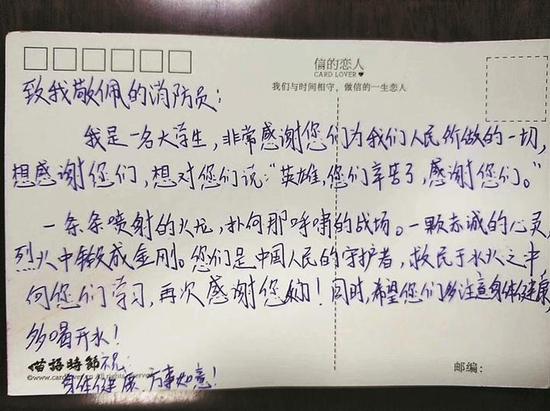 信的恋人
CARD LOVER
我们与时间相守，做信的一生恋人
致我敬佩的消防员：
我是一名大学生，非常感谢您们为我们人民所做的一切，
想感谢您们，想对您们说：“英雄，您们辛苦了，感谢您们。”
一条条喷射的火龙，扑向那呼啸的战场。一颗赤诚的心灵，
烈火中锻成金刚。您们是中国人民的守护者，救民于水火之中
向您们学习，再次感谢您们！同时，希望您们多注意身体健康，
多喝开水！
祝：
身体健康 万事如意！
邮编：